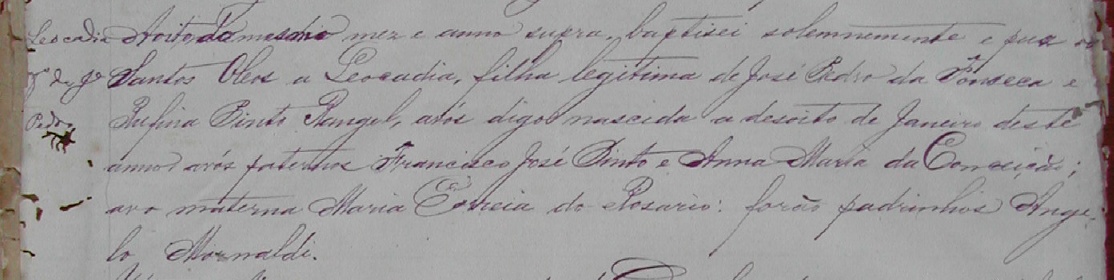 Leocadia
fª de Jé
Pedro
Aoito do mesmo mez e anno supra, baptisei solemnemente e puz os
Santos Oleos a Leocadia, filha legitima de José Pedro da Fonseca e
Rufina Pinto Rangel, avós digo nascida a desoito de Janeiro deste
anno avós paternos Francisco José Pinto e Anna Maria da Conceição;
avo materna Maria Correia do Rosario: forão padrinhos Ange-
lo Mornaldi.